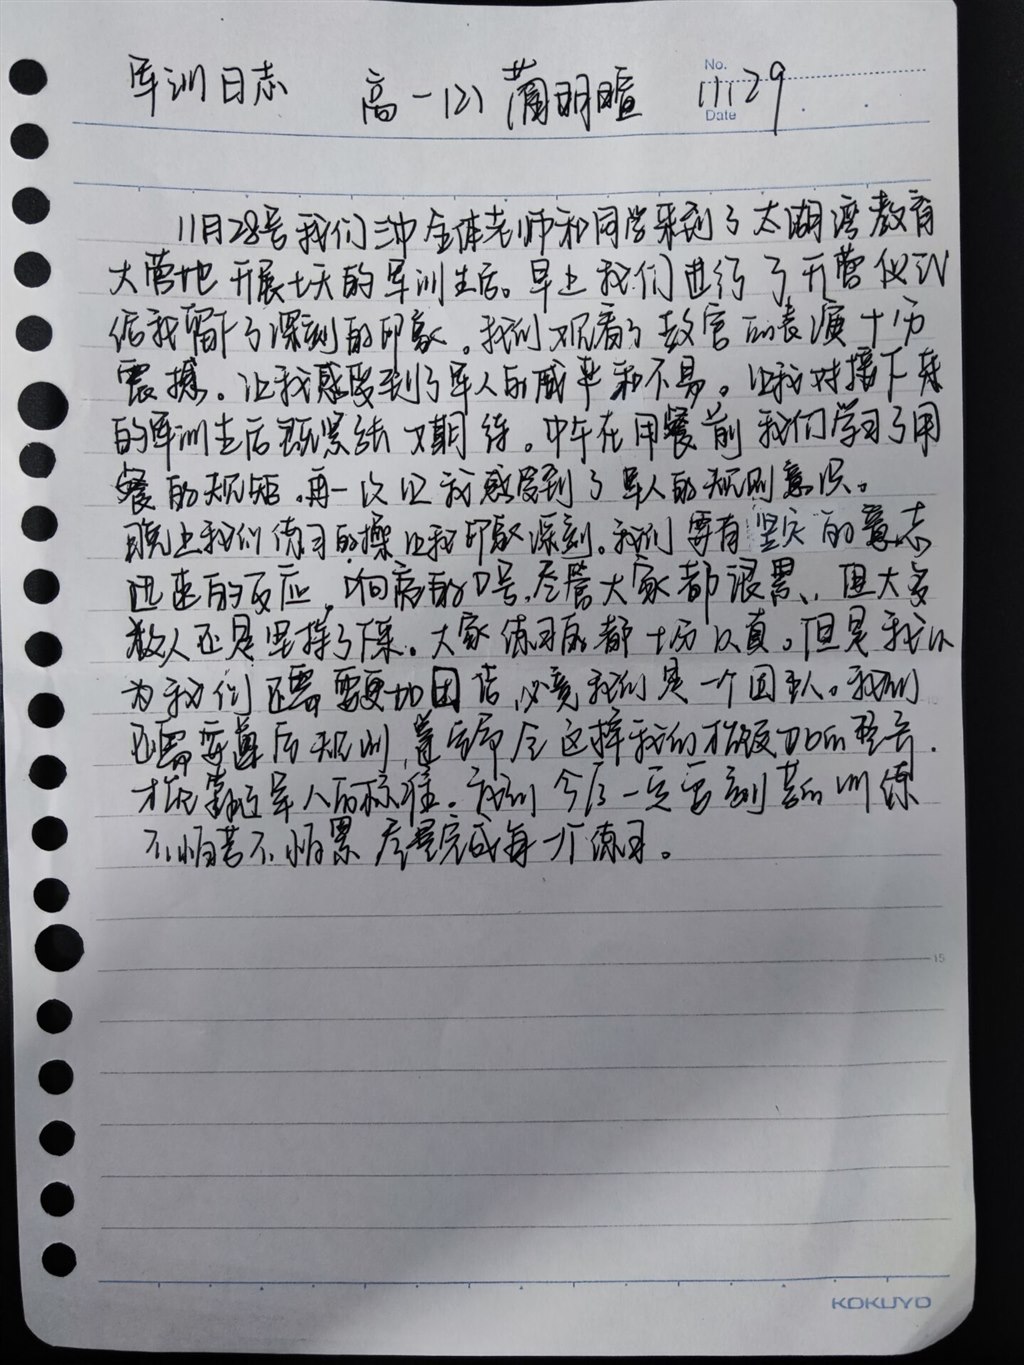 军训日志 高一(2) 蔺明暄 No. Date 11.29
11月28号我们三中全体老师和同学来到了太湖湾教育
大营地开展七天的军训生活。早上我们进行了开营仪式
给我留下了深刻的印象。我们观看了教官的表演十分
震撼。让我感受到了军人的威严和不易。让我对接下来
的军训生活既紧张又期待。中午在用餐前我们学习了用
餐的规矩。再一次让我感受到了军人的规则意识。
晚上我们练习的操让我印象深刻。我们要有坚定的意志
迅速的反应,响亮的口号,尽管大家都很累、但大多
数人还是坚持了下来。大家练习时都十分认真。但是我认
为我们还需要更加团结,必竟我们是一个团队。我们
还需要遵历规则,遵守命令这样我们才能更加的整齐.
才能靠近军人的标准。我们今后一定要刻苦的训练
不怕苦不怕累 尽量完成每一个练习。
15
KOKUYO